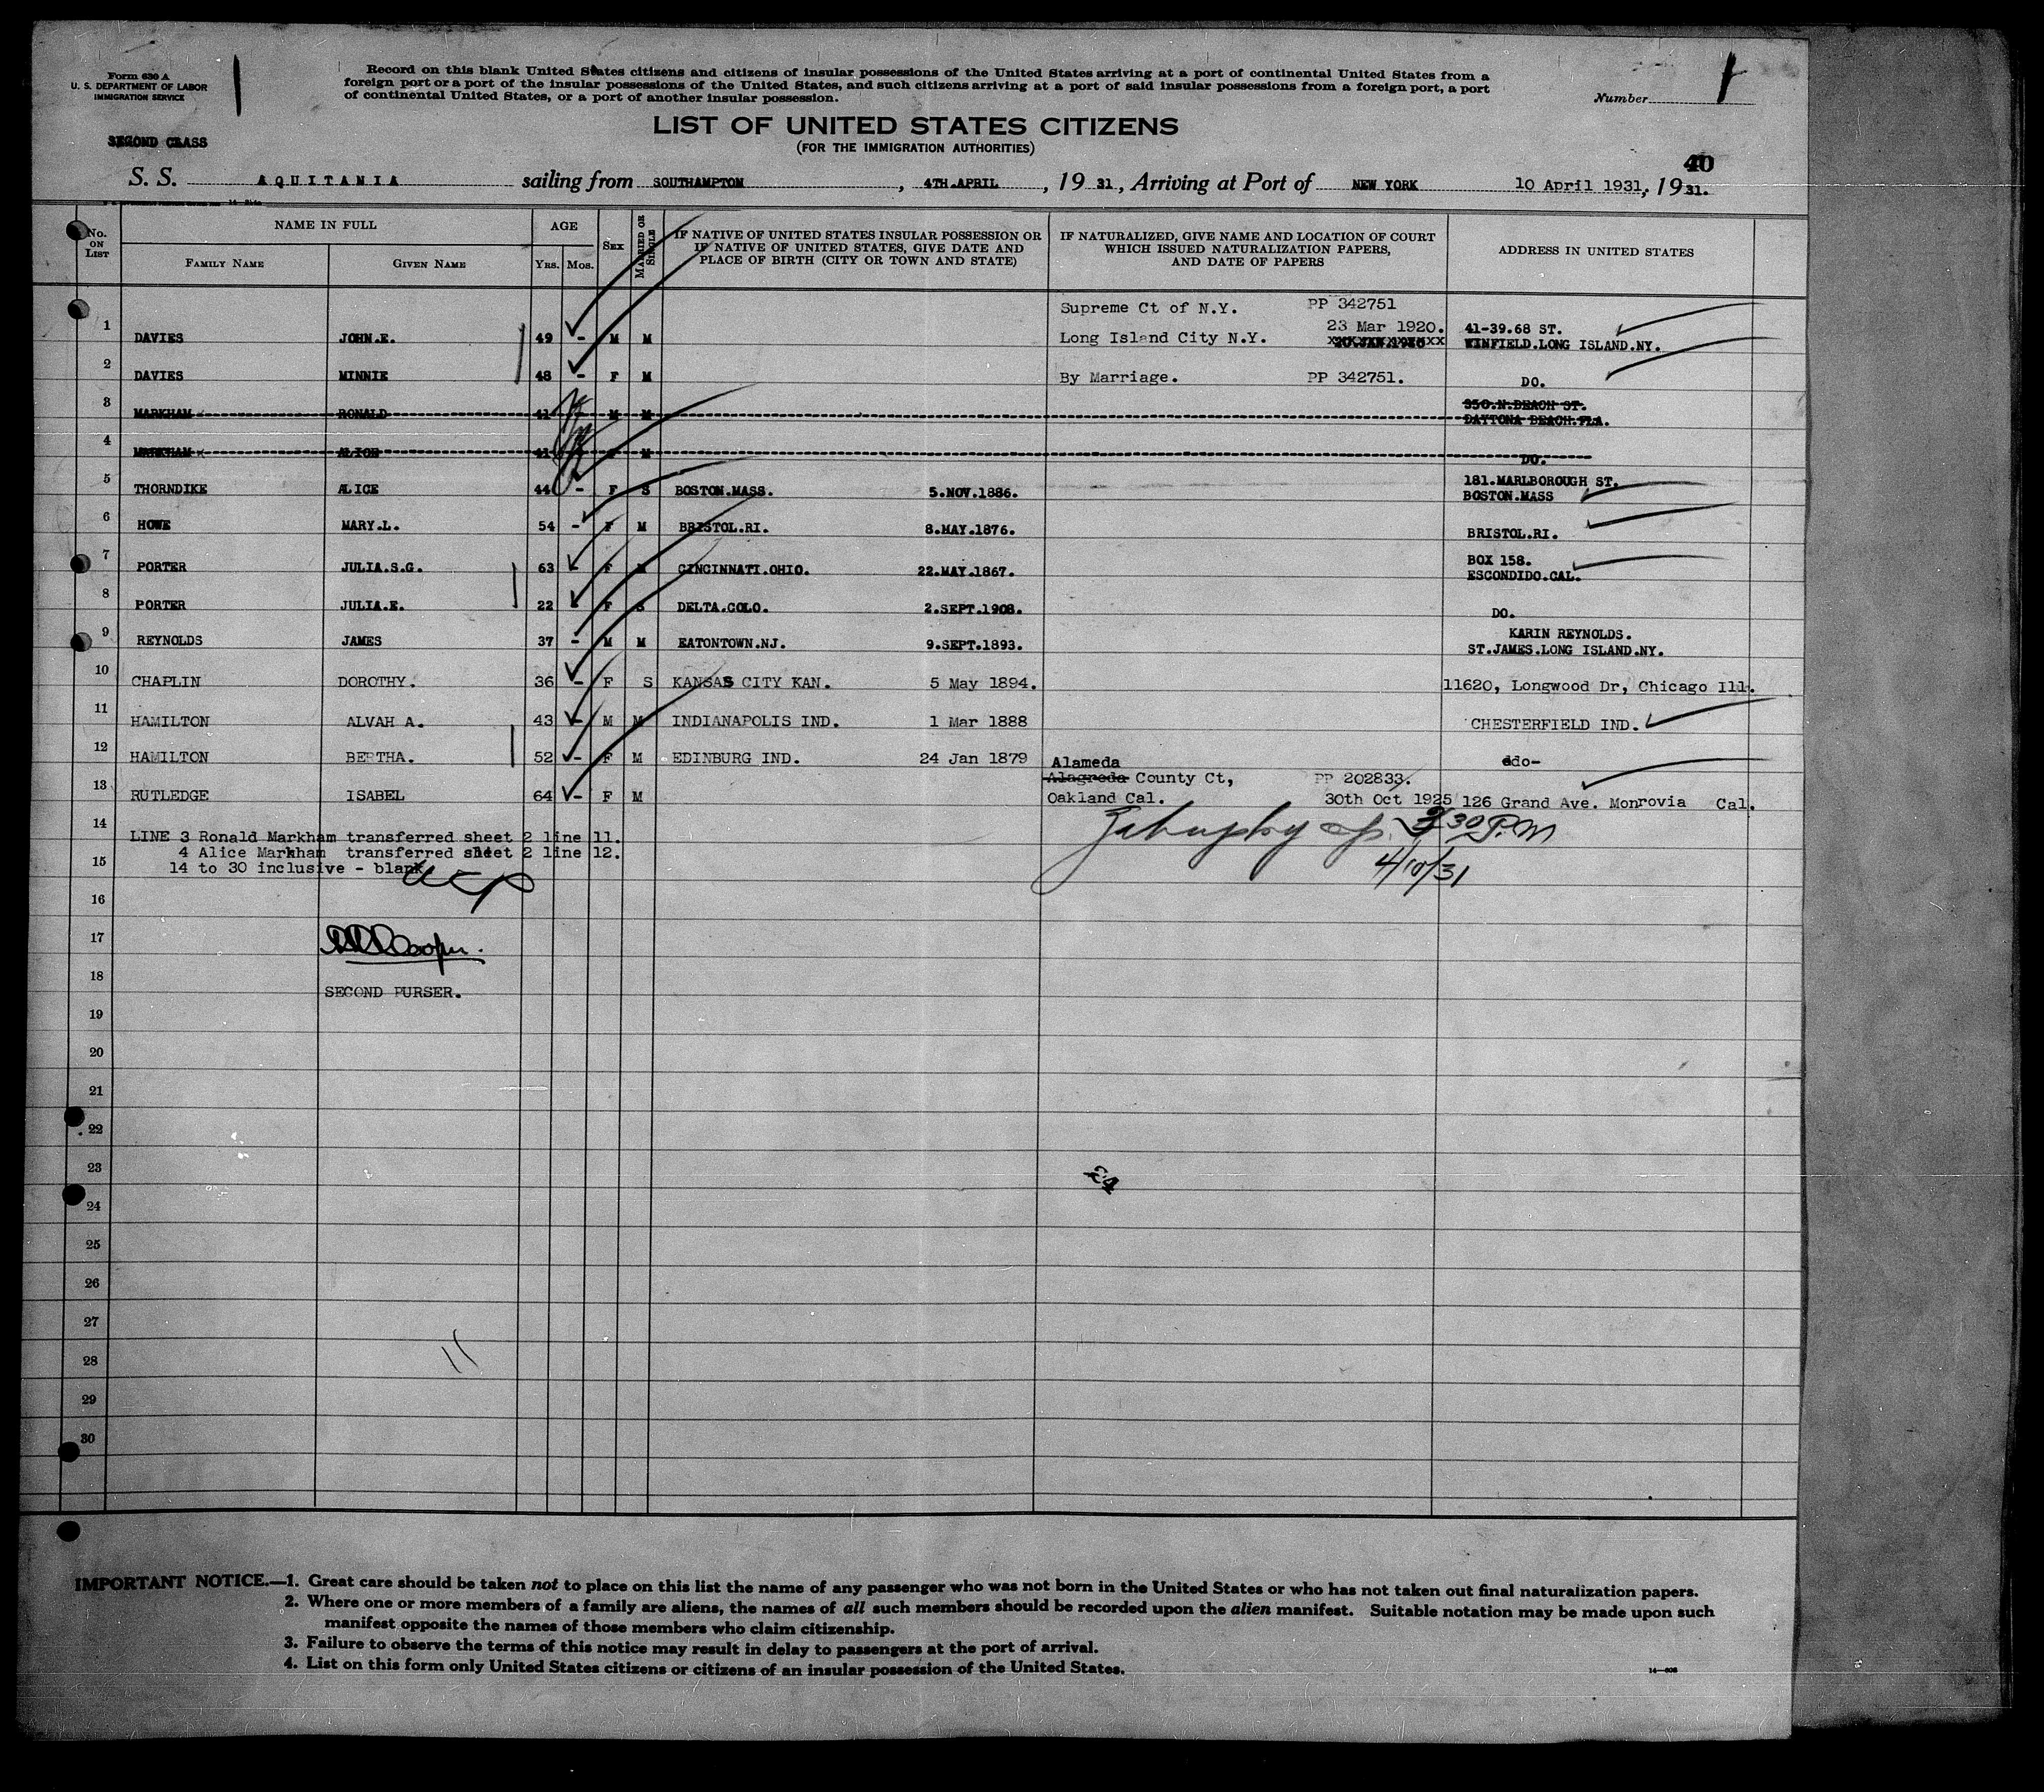 Form 630 A
U. S. DEPARTMENT OF LABOR
IMMIGRATION SERVICE
Record on this blank United States citizens and citizens of insular possessions of the United States arriving at a port of continental United States from a
foreign port or a port of the insular possessions of the United States, and such citizens arriving at a port of said insular possessions from a foreign port, a port
of continental United States, or a port of another insular possession.
Number
LIST OF UNITED STATES CITIZENS
(FOR THE IMMIGRATION AUTHORITIES)
SECOND CLASS
40
S. S. AQUITANIA sailing from SOUTHAMPTON, 4TH.APRIL, 19 31, Arriving at Port of NEW YORK 10 April 1931, 19 31.
No. ON LIST
NAME IN FULL
FAMILY NAME GIVEN NAME
AGE
YRS. MOS.
SEX
MARRIED OR SINGLE
IF NATIVE OF UNITED STATES INSULAR POSSESSION OR
IF NATIVE OF UNITED STATES, GIVE DATE AND
PLACE OF BIRTH (CITY OR TOWN AND STATE)
IF NATURALIZED, GIVE NAME AND LOCATION OF COURT
WHICH ISSUED NATURALIZATION PAPERS,
AND DATE OF PAPERS
ADDRESS IN UNITED STATES
Supreme Ct of N.Y. PP 342751
23 Mar 1920. 41-39.68 ST.
1 DAVIES JOHN.E. 49 - M M Long Island City N.Y. WINFIELD.LONG ISLAND.NY.
2 DAVIES MINNIE 48 - F M By Marriage. PP 342751. DO.
350.N.BEACH ST.
3 MARKHAM RONALD 41 M M DAYTONA BEACH.FLA.
4 MARKHAM ALICE 41 M DO.
181.MARLBOROUGH ST.
5 THORNDIKE ALICE 44 - F S BOSTON.MASS. 5.NOV.1886. BOSTON.MASS
6 HOWE MARY.L. 54 - F M BRISTOL.RI. 8.MAY.1876. BRISTOL.RI.
BOX 158.
7 PORTER JULIA.S.G. 63 F M CINCINNATI.OHIO. 22.MAY.1867. ESCONDIDO.CAL.
8 PORTER JULIA.E. 22 F S DELTA.COLO. 2.SEPT.1908. DO.
KARIN REYNOLDS.
9 REYNOLDS JAMES 37 - M M EATONTOWN.NJ. 9.SEPT.1893. ST.JAMES.LONG ISLAND.NY.
10 CHAPLIN DOROTHY. 36 - F S KANSAS CITY KAN. 5 May 1894. 11620, Longwood Dr, Chicago Ill.
11 HAMILTON ALVAH A. 43 - M M INDIANAPOLIS IND. 1 Mar 1888 CHESTERFIELD IND.
12 HAMILTON BERTHA. 52 - F M EDINBURG IND. 24 Jan 1879 ddo-
Alameda
Alagreda County Ct, PP 202833.
13 RUTLEDGE ISABEL 64 - F M Oakland Cal. 30th Oct 1925 126 Grand Ave. Monrovia Cal.
14 LINE 3 Ronald Markham transferred sheet 2 line 11.
4 Alice Markham transferred sheet 2 line 12.
15 14 to 30 inclusive - blank
30 P.M
4/10/31
16
17
18 SECOND PURSER.
19
20
21
22
23
24
24
25
26
27
28
29
30
IMPORTANT NOTICE.—1. Great care should be taken not to place on this list the name of any passenger who was not born in the United States or who has not taken out final naturalization papers.
2. Where one or more members of a family are aliens, the names of all such members should be recorded upon the alien manifest. Suitable notation may be made upon such
manifest opposite the names of those members who claim citizenship.
3. Failure to observe the terms of this notice may result in delay to passengers at the port of arrival.
4. List on this form only United States citizens or citizens of an insular possession of the United States.